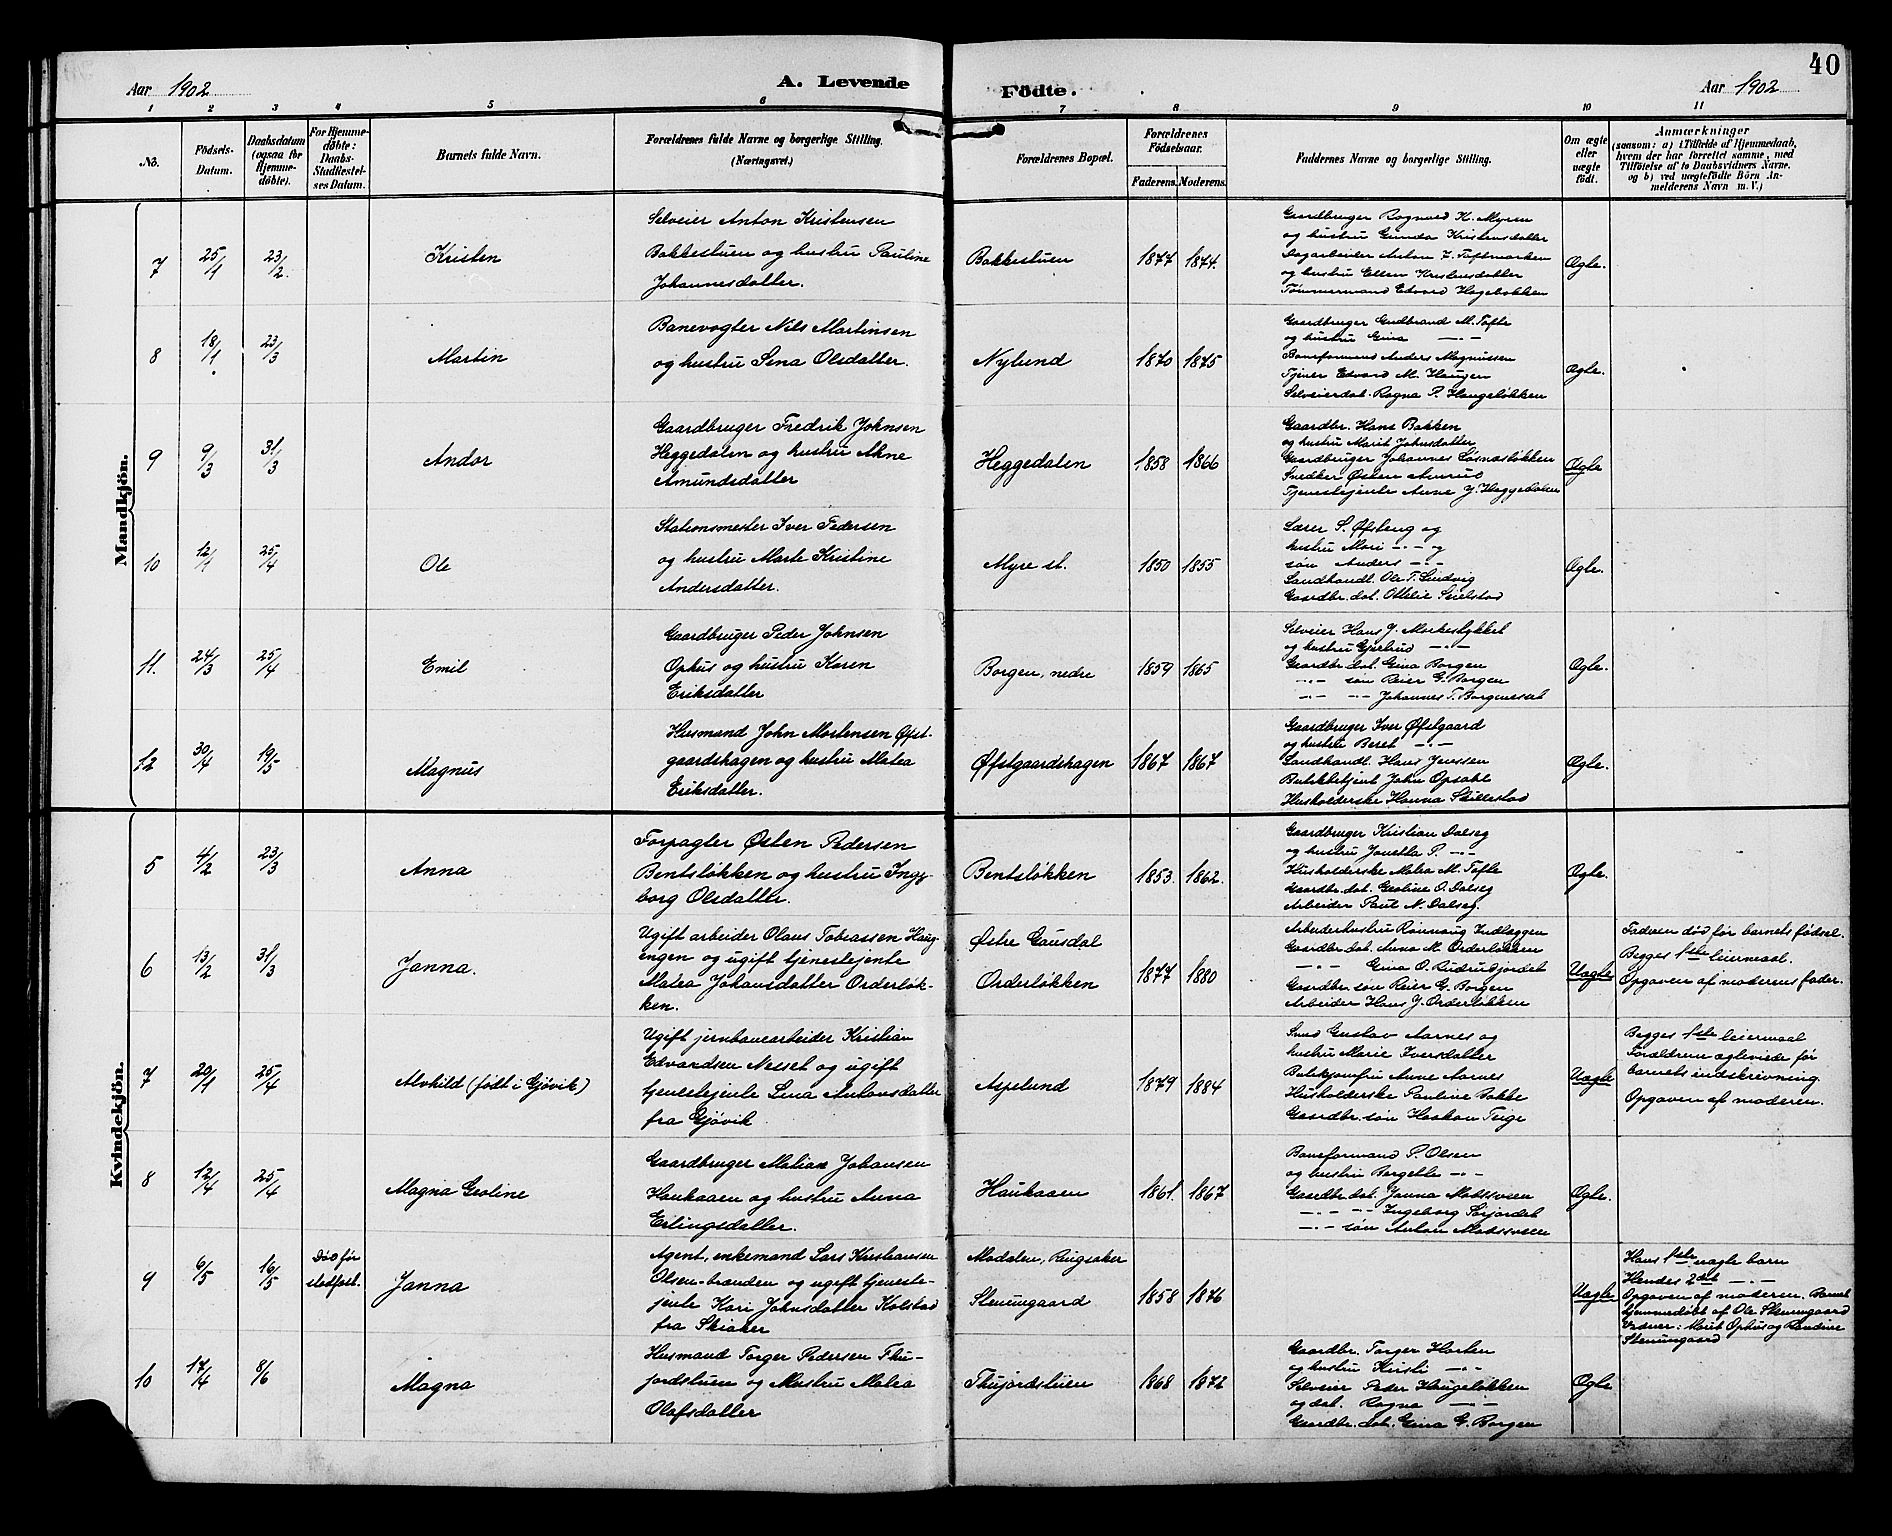 40
Aar 1902
A. Levende
Födte.
Aar 1902
1 2 3 4 5 6 7 8 9 10 11
No.
Födsels-Datum.
Daabsdatum (ogsaa for Hjemmedöbte).
For Hjemmedöbte: Daabs-Stadfæstelses Datum.
Barnets fulde Navn.
Forældrenes fulde Navne og borgerlige Stilling. (Næringsvei.)
Forældrenes Bopæl.
Forældrenes Födselsaar.
Faderens. Moderens.
Faddernes Navne og borgerlige Stilling.
Om ægte eller uægte födt.
Anmærkninger
(saasom: a) i Tilfælde af Hjemmedaab,
hvem der har forrettet samme, med
Tilföielse af to Daabsvidners Navne.
og b) ved uægtefödte Börn An-
melderens Navn m. V.)
Mandkjön.
7 25/1 23/2. Kristen
Selveier Anton Kristensen
Bakkestuen og hustru Pauline
Johannesdatter.
Bakkestuen 1877 1874.
Gaardbruger Ragnvard K. Myren
og hustru Gunda Kristensdatter
Dagarbeider Anton J. Toftmarken
og hustru Ellen Kristensdatter
Tømmermand Edvard Hagebakken
Ægte.
8 18/1 23/3 Martin
Banevogter Nils Martinsen
og hustru Lena Olsdatter.
Nylund 1870 1875
Gaardbruger Gudbrand M. Tofte
og hustru Gina -"-
Baneformand Anders Magnussen
Tjener Edvard M. Haugen
Selveierdat. Ragna P. Haugeløkken
Ægte.
9 9/3 31/3 Andor
Gaardbruger Fredrik Johnsen
Heggedalen og hustru Ahne
Amundsdatter
Heggedalen 1858 1866
Gaardbr. Hans Bakken
og hustru Marit Johnsdatter
Gaardbruger Johannes Løsnæsløkken
Snedker Østen Amrud
Tjenestejente Anne J. Heggedalen
Ægte
10 12/1 25/4 Ole
Stationsmester Iver Pedersen
og hustru Marte Kristine
Andersdatter.
Myre st. 1850 1855
Lærer S. Øfsteng og
hustru Mari -"- og
søn Anders -"-
Landhandl. Ole T. Lindvig
Gaardbr. dat. Othelie Skielstad
Ægte.
11. 24/3 25/4 Emil
Gaardbruger Peder Johnsen
Ophus og hustru Karen
Eriksdatter
Borgen, nedre 1859 1865
Selveier Hans J. Morkestykket
og hustru Gjertrud -"-
Gaardbr. dat. Gina Borgen
-"- søn Reier G. Borgen
-"- -"- Johannes T. Borgeneset
Ægte.
12 30/4 19/5 Magnus
Husmand John Mortensen Øfst-
gaardshagen og hustru Matea
Eriksdatter.
Øfstgaardshagen 1867 1867
Gaardbruger Iver Øfstgaard
og hustru Beret -"-
Landhandl. Hans Jenssen
Butikbetjent John Opsahl
Husholderske Hanna Skillestad
Ægte.
Kvindekjön.
5 4/2 23/3 Anna
Forpagter Østen Pedersen
Bentsløkken og hustru Inge-
borg Olsdatter.
Bentsløkken 1853. 1862.
Gaardbruger Kristian Dalseg
og hustru Jonetta P. -"-
Husholderske Matea M. Tofte
Gaardbr. dat. Geoline O. Dalseg
Arbeider Paul N. Dalseg.
Ægte.
6 13/2 31/3 Janna.
Ugift arbeider Olaus Tobiassen Haug-
engen og ugift tjenestejente
Matea Johansdatter Orderløk-
ken.
Østre Gausdal
Orderløkken 1877 1880
Arbeiderhustru Rønnaug Indlæggen
Gaardbr. dat. Anna M. Orderløkken
-"- Gina O. Rudrudjordet
Gaardbr. søn Reier G. Borgen
Arbeider Hans J. Orderløkken
Uægte
Faderen død før barnets fødsel.
Begges 1ste leiermaal.
Opgaven af moderens fader.
7 20/1 25/4 Alvhild (født i Gjøvik)
Ugift jernbanearbeider Kristian
Edvardsen Neeset og ugift
tjenestejente Lina Antonsdatter
fra Gjøvik
Aspelund 1879 1884
Smed Gustav Aarnes og
hustru Marie Iversdatter
Butikjomfru Anne Aarnes
Husholderske Pauline Bakke
Gaardbr. søn Haakon Teige
Uægte
Begges 1ste leiermaal
Forældrene ægteviede før
barnets indskrivning.
Opgaven af moderen.
8 12/4 25/4 Magna Geoline
Gaardbruger Matias Johansen
Haukaaen og hustru Anna
Erlingsdatter.
Haukaaen 1861. 1867
Baneformand P. Olsen
og hustru Bergitte -"-
Gaardbr. dat. Janna Madssveen
-"- -"- Ingeborg Sørjordet
-"- søn Anton Madssveen
Ægte.
9 6/5 16/5 Død før
stadfæst.
Janna
Agent, enkemand Lars Kristiansen
Olsen-branden og ugift tjeneste-
jente Kari Johnsdatter Kolstad
fra Skiaker
Modalen, Ringsaker
Steinsgaard 1858 1876
Uægte
Hans 1ste uægte barn
Hendes 2det -"-
Opgaven af moderen. Barnet
hjemmedøbt af Ole Steinsgaard
Vidner: Marit Ophus og Randine
Steinsgaard
10 17/4 8/6 Magna
Husmand Torger Pedersen Thu-
jordstuen og Hustru Matea
Olafsdatter
Thujordstuen 1868 1872
Gaardbr. Torger Horten
og hustru Kristi -"-
Selveier Peder Haugeløkken
og dat. Ragna -"-
Gaardbr. dat. Gina G. Borgen
Ægte